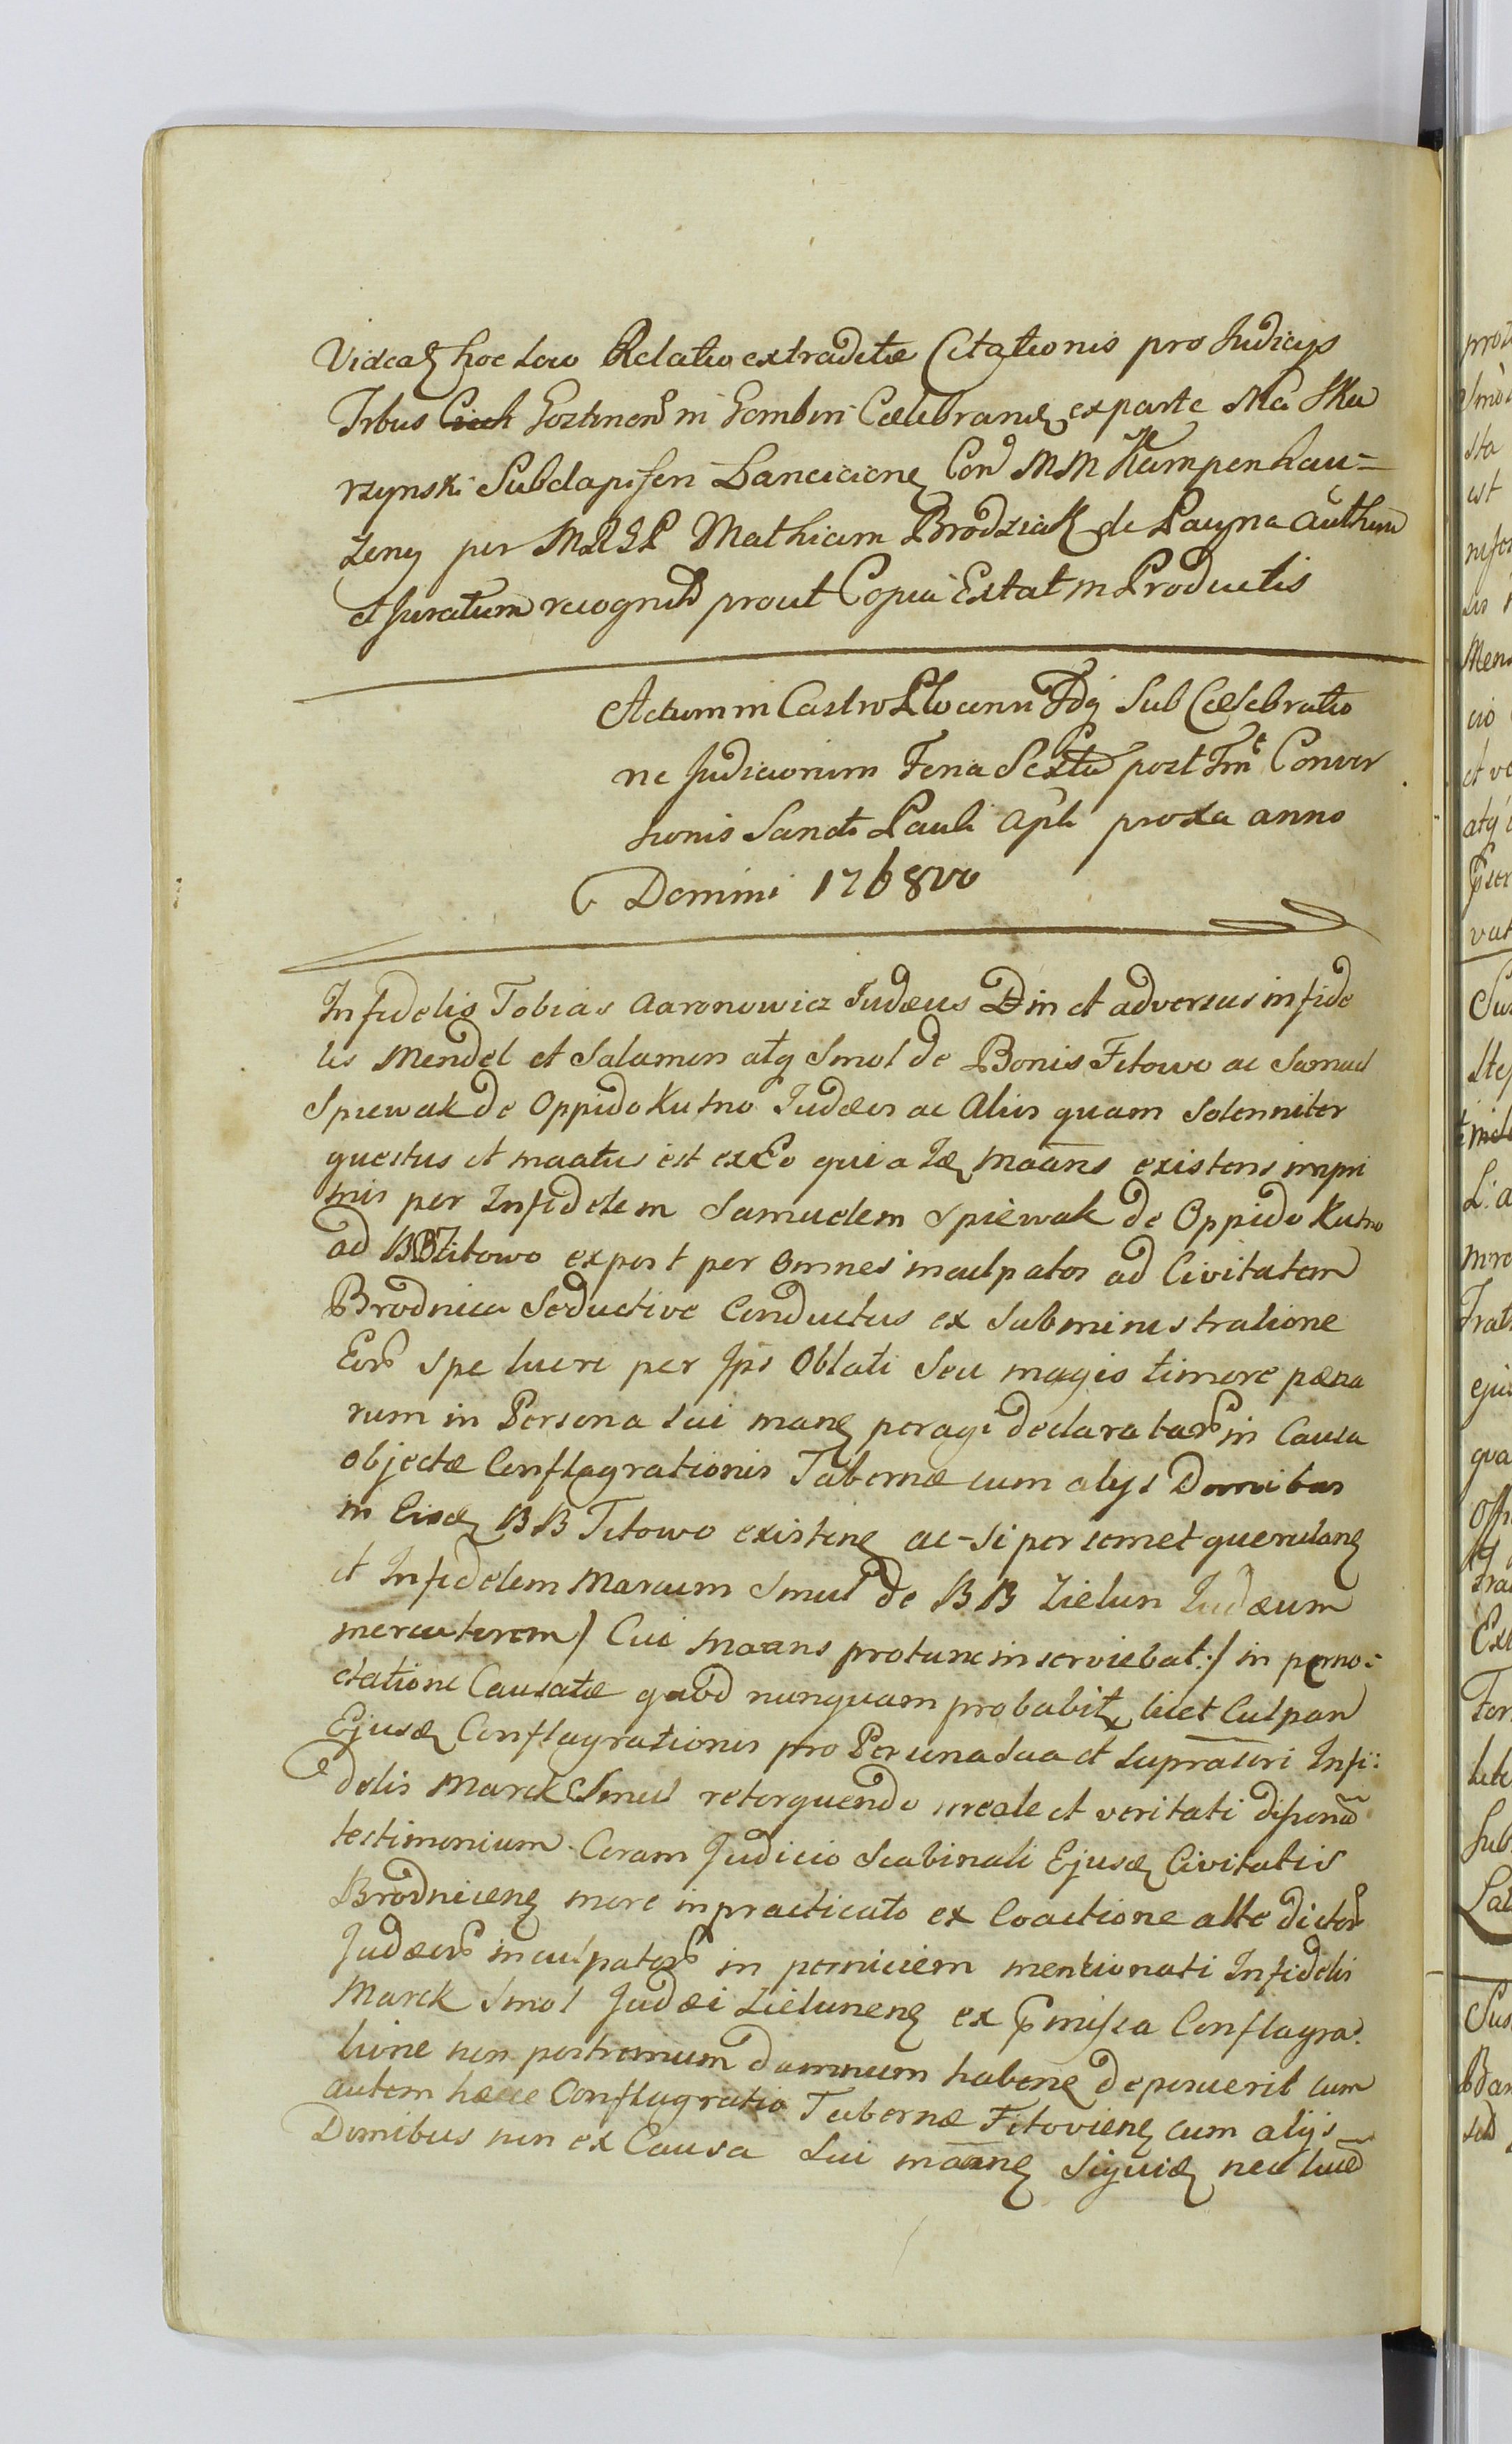 Videatꝫ hoc Loco Relatio extraditæ Citationis pro Judicijs
Trbus Gostinenˢ in Gombin Cælebranꝫ ex parte Mci Sku
rzynski Subdapiferi Lancicienꝫ Conᵃ MM Kampenhau=
zeny per MRGP Mathiam Brodziak de Pacyna authen
et juratum recognitᵈ prout Copia Extat in Productis
Actum in Castro Plocenn Fdꝫ Sub Cælebratio
ne Judiciorum Feria Sexta post Fmᵗ Conver
sionis Sancti Pauli Apli proxa anno
Domini 1768vo
Infidelis Tobias Aaronowicz Judæus in et adversus infide
les Mendel et Salamon atq Smol de Bonis Titowo ac Samuel
Spiewak de Oppido Kutno Judæos ac Alios quam Solenniter
questus et maatus est ex Eo quia Iꝫ Maans existens impri
mis per Infidelem Samuelem Spiewak de Oppido Kutno
ad BB Titowo expost per Omnes inculpatos ad Civitatem
Brodnica Seductive Conductus ex Subministratione
Eorᵒ Spe lucri per Jps Oblati Seu magis timore pæna
rum in Persona Sui manꝫ peragi declaratarᵒ in Causa
objectæ Conflagrationis Tabernæ cum alijs Domibus
in Eisdꝫ BB Titowo existenꝫ ac-si per semet querulanꝫ
et Infidelem Marcum Smul de BB Zielun Judæum
mercatorem/ Cui Maans protunc inserviebat:/ in perno=
ctatione Causatæ quod nunquam probabitꝫ licet Culpam
Ejusdꝫ Conflagrationis pro Persona Sua et Suprascri Infi:
delis Marck Smul retorquendo irreale et veritati disponũ
testimonium Coram Judicio Scabinali Ejusdꝫ Civitatis
Brodnicenꝫ more inpracticato ex Coactione atte dictorᵒ
Judæorᵒ inculpatorᵒ in perniciem mentionati Infidelis
Marck Smol Judæi Zielunenꝫ ex pmissa Conflagra:
tione non postremum damnum habenꝫ deposuerit cum
autem hæcce Conflagratio Tabernæ Fitovienꝫ cum alijs
Domibus non ex Causa Sui maanꝫ Siquidꝫ nec